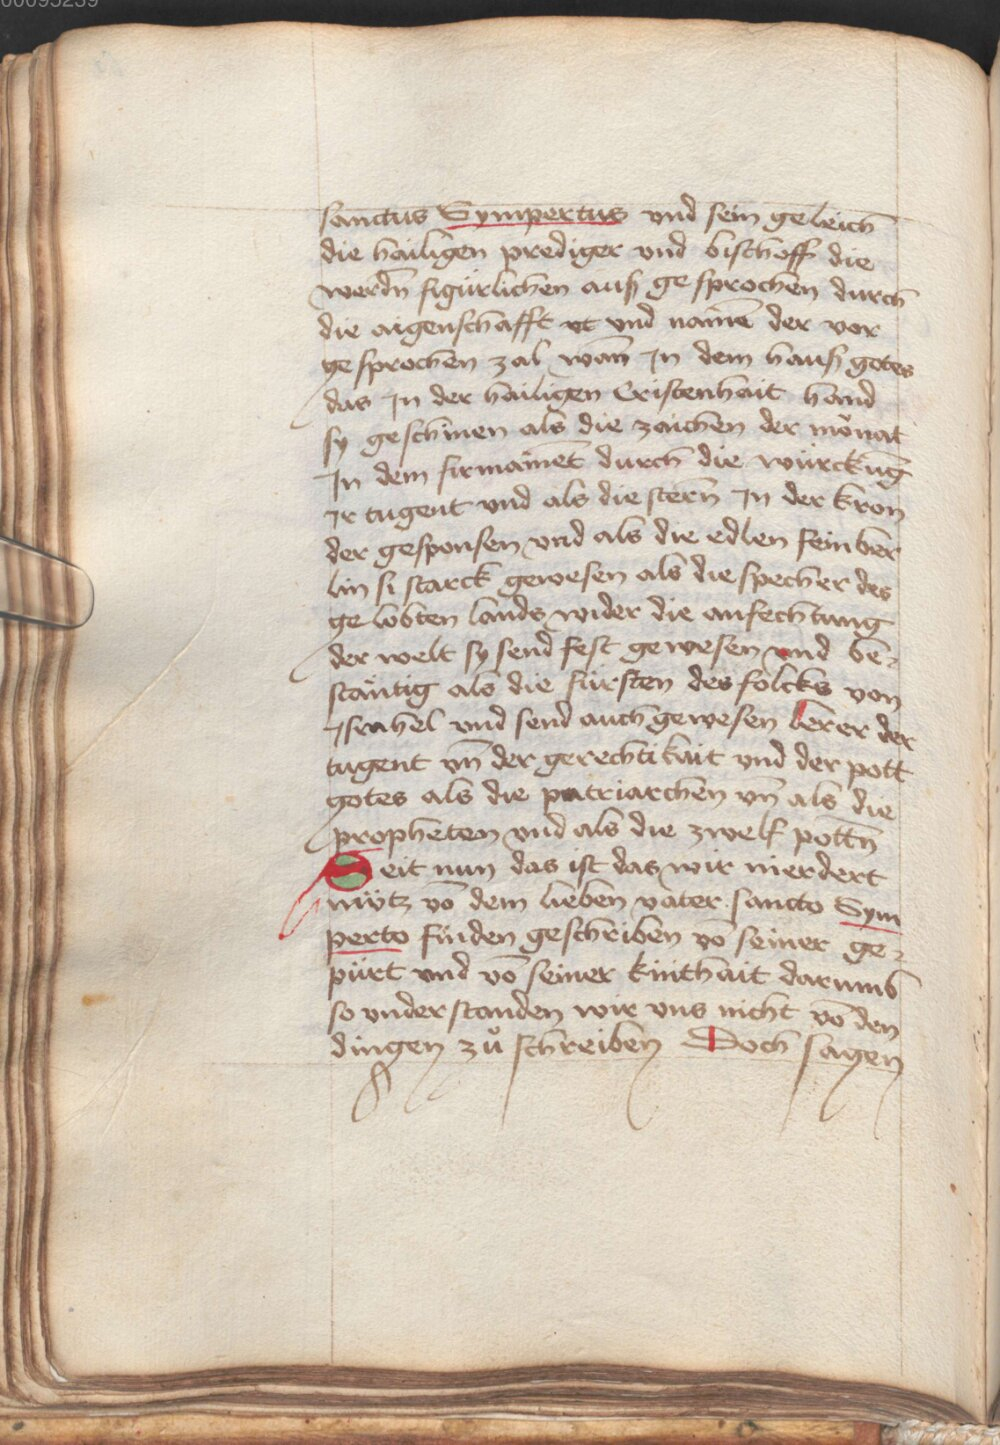 00095239
sanctus Sympertus vnd sein geleich
die hailigen prediger vnd bischoff die
werdn̄ figürlichen auß gesprochen durch
die aigenschafft vt vnd namē der vor
gesprochen zal wan̄ Jn dem hauß gotes
das Jn der hailigen Cristenhait hand
sy geschinen als die zaichen der mönat
Jn dem firmamēt durch die würckūg
Jr tugent vnd als die stern̄ Jn der kron
der gesponsen vnd als die edlen sein ber
lin si starck gewesen als die specher des
gelobten lands wider die anfechtung
der welt sy send fest gewesen vnd be-
stäntig als die fürsten des folcks von
Jsrahel vnd send auch gewesen lerer der
tugent vn̄ der gerechtikait vnd der pott
gotes als die patriarchen vn̄ als die
propheten vnd als die zwelf pottn̄
Seit nun das ist das wir nierdert
nütz vō dem lieben vater sancto Sym
perto finden geschriben vō seiner ge-
pürt vnd vō seiner kinthait darumb
so vnderstanden wir vns nicht vō den
dingen zů schreiben Doch sagen